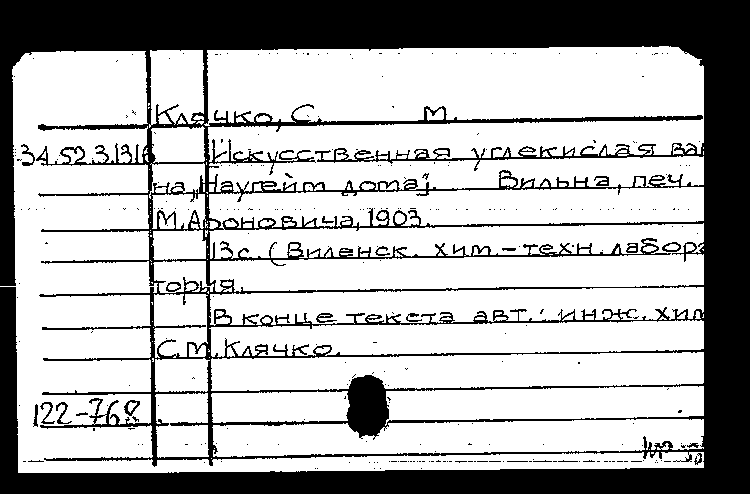 Клячко, С. М.
34.52.3.1316 Искусственная углекислая ван
на „Наугейм дома". Вильна, печ.
М. Ароновича, 1903.
13с. (Виленск. хим.-техн. лабора
тория.
В конце текста авт.: инж. хим
С.М. Клячко.
122-768